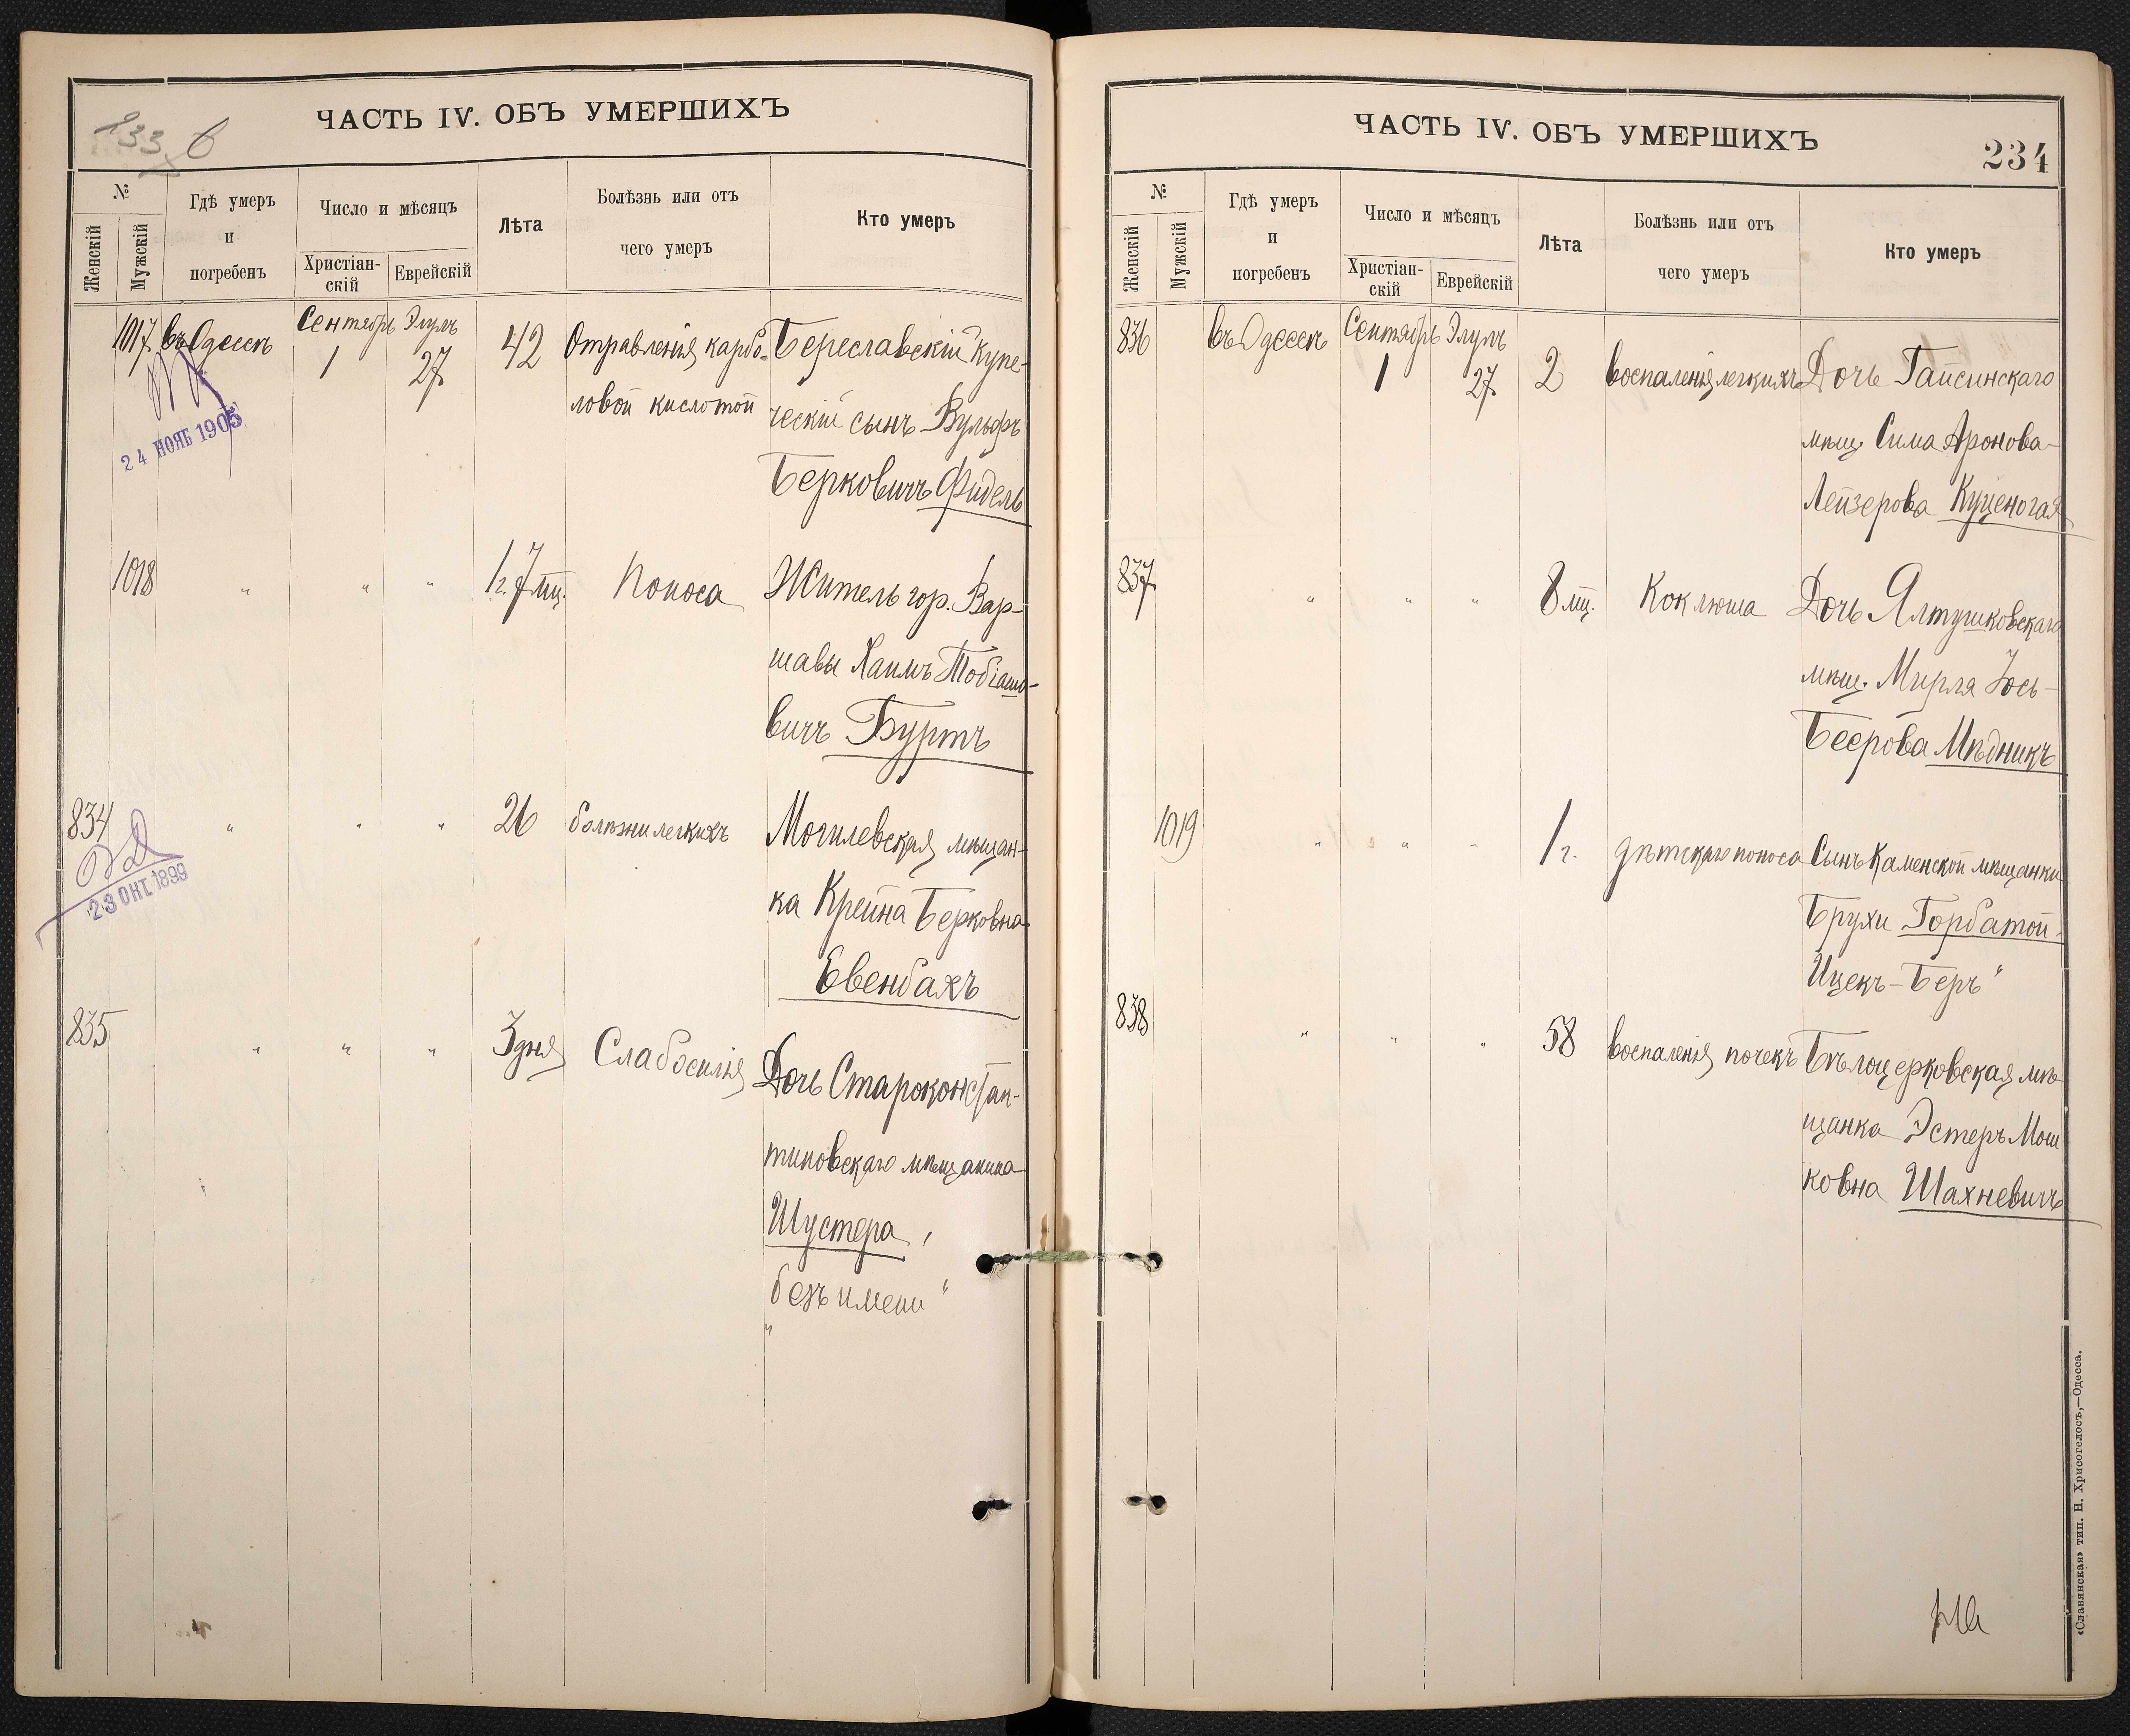 ЧАСТЬ IV. ОБЪ УМЕРШИХЪ
233
№
Женскій
Мужскій
Гдѣ умеръ
и
погребенъ
Число и мѣсяцъ
Христіан-
скій
Еврейскій
Лѣта
Болѣзнь или отъ
чего умеръ
Кто умеръ
1017 въ Одессѣ Сентябрь Элулъ 42 Отравленія карбо- Береславскій Купе-
1 27 ловой кислотой ческій сынъ Вульфъ
Берковичъ Фидель
24 НОЯБ 1905
1018 " " " 1 г. 7 мц. Поноса Житель гор. Вар-
шавы Хаимъ Тобіаше-
вичъ Буртъ
834 " " " 26 болѣзни легкихъ Могилевская мѣщан-
ка Крейна Берковна
Евенбахъ
23 ОКТ. 1899
835 " " " 3 дня Слабосилія Дочь Староконстан-
тиновскаго мѣщанина
Шустера,
„безъ имени“
ЧАСТЬ IV. ОБЪ УМЕРШИХЪ
234
№
Женскій
Мужскій
Гдѣ умеръ
и
погребенъ
Число и мѣсяцъ
Христіан-
скій
Еврейскій
Лѣта
Болѣзнь или отъ
чего умеръ
Кто умеръ
836 въ Одессѣ Сентябрь Элулъ
1 27 2 воспаленія легкихъ Дочь Гайсинскаго
мѣщ. Сима Аронова-
Лейзерова Куценогая
837 " " " 8 мц. Коклюша Дочь Ялтушковскаго
мѣщ. Мирля Іось-
Беерова Мѣдникъ
1019 " " " 1 г. дѣтскаго поноса Сынъ Каменской мѣщанки
Брухи Горбатой-
Ицекъ-Беръ“
838 " " " 58 воспаленія почекъ Бѣлоцерковская мѣ-
щанка Эстеръ Мош
ковна Шахневичъ
«Славянская» тип. Н. Хрисогелосъ,—Одесса.